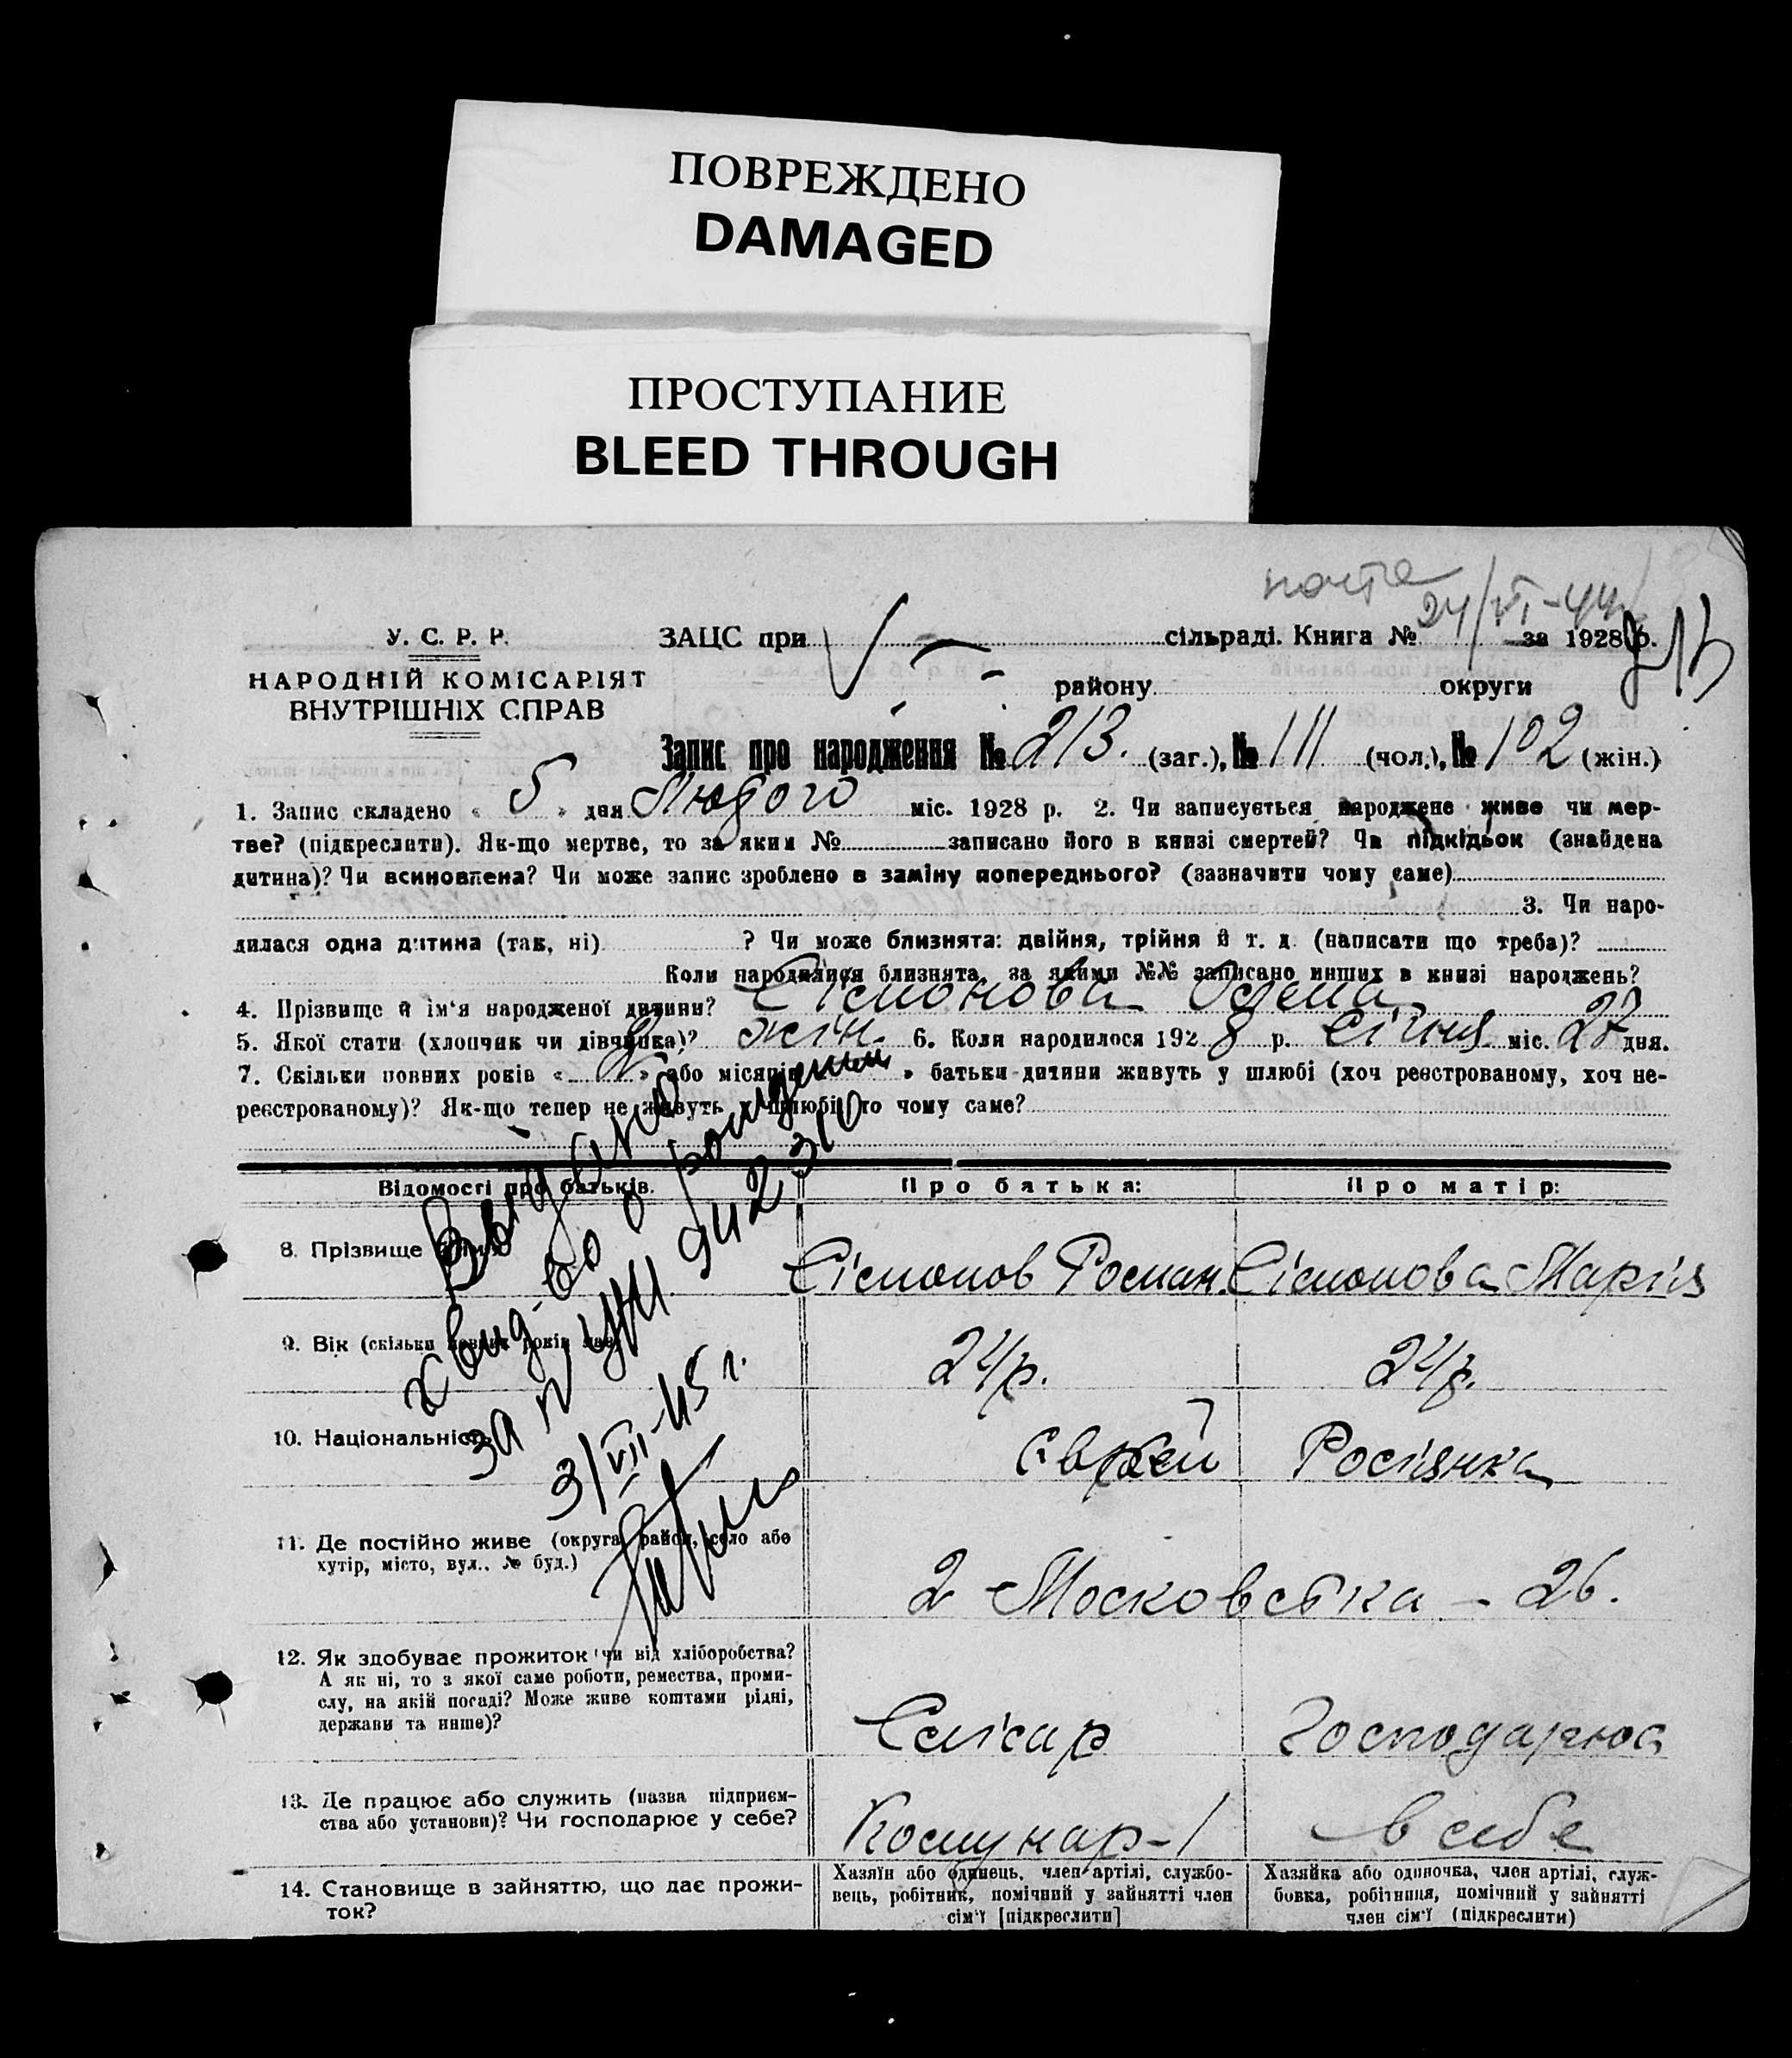 ПОВРЕЖДЕНО
DAMAGED
ПРОСТУПАНИЕ
BLEED THROUGH
почта
24/VI-44
У. С. Р. Р.
ЗАЦС при сільраді. Книга № за 1928 р.
213
НАРОДНІЙ КОМІСАРІЯТ
ВНУТРІШНІХ СПРАВ
району округи
Запис про народження № 213. (заг.), № 111 (чол.), № 102 (жін.)
1. Запис складено « 5 » дня Лютого міс. 1928 р. 2. Чи записується народжене живе чи мер-
тве? (підкреслити). Як-що мертве, то за яким № записано його в книзі смертей? Чи підкідьок (знайдена
дитина)? Чи всиновлена? Чи може запис зроблено в заміну попереднього? (зазначити чому саме)
3. Чи наро-
дилася одна дитина (так, ні) ? Чи може близнята: двійня, трійня й т. д. (написати що треба)?
Коли народилися близнята, за якими №№ записано инших в книзі народжень?
4. Прізвище й ім'я народженої дитини? Сімонова
5. Якої стати (хлопчик чи дівчинка)? жін. 6. Коли народилося 1928 р. Січня міс. 27 дня.
7. Скільки повних років « 2 » або місяців » батьки дитини живуть у шлюбі (хоч реєстрованому, хоч не-
реєстрованому)? Як-що тепер не живуть у шлюбі, то чому саме?
Выдано
свид-во о рождении
за № УЖ 942310
3/VII-45 г.
Відомості про батьків. Про батька: Про матір:
8. Прізвище й ім'я Сімонов Роман. Сімонова Марія
9. Вік (скільки повних років має) 24 р. 24 р.
10. Національність Єврей Росіянка
11. Де постійно живе (округа, район, село або
хутір, місто, вул.. № буд.)
2 Московська - 26.
12. Як здобуває прожиток чи від хліборобства?
А як ні, то з якої саме роботи, ремества, проми-
слу, на якій посаді? Може живе коштами рідні,
держави та инше)?
Слісар Господарює
13. Де працює або служить (назва підприєм-
ства або установи)? Чи господарює у себе?
Комунар-1 в себе
14. Становище в зайняттю, що дає прожи-
ток?
Хазяїн або одинець, член артілі, службо-
вець, робітник, помічний у зайнятті член
сім'ї [підкреслити]
Хазяйка або одиночка, член артілі, служ-
бовка, робітниця, помічний у зайнятті
член сім'ї (підкреслити)